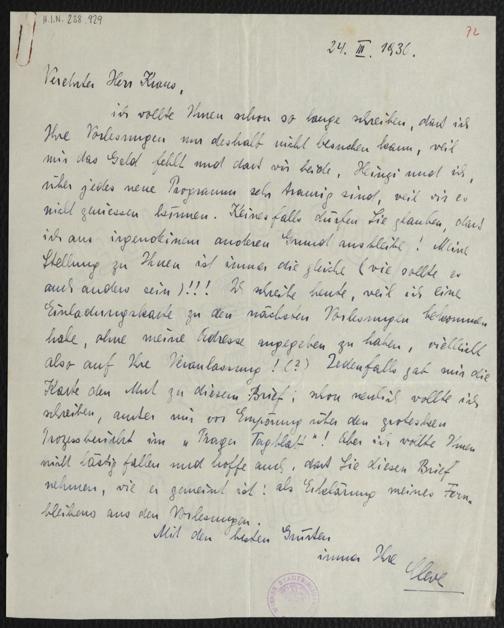 H.I.N. 238.929
72
24. III. 1936.
Verehrter Herr Kraus,
ich wollte Ihnen schon so lange schreiben, dass ich
Ihre Vorlesungen nur deshalb nicht besuchen kann, weil
mir das Geld fehlt und dass wir beide, Heinzi und ich,
über jedes neue Programm sehr traurig sind, weil wir es
nicht geniessen können. Keinesfalls dürfen Sie glauben, dass
ich aus irgendeinem anderen Grund ausbleibe! Meine
Stellung zu Ihnen ist immer die gleiche (wie sollte es
auch anders sein)!!! Ich schreibe heute, weil ich eine
Einladungskarte zu den nächsten Vorlesungen bekommen
habe, ohne meine Adresse angegeben zu haben, vielleicht
also auf Ihre Veranlassung! (?) Jedenfalls gab mir die
Karte den Mut zu diesem Brief; schon neulich wollte ich
schreiben, ausser mir vor Empörung über den grotesken
Prozessbericht im "Prager Tagblatt"! Aber ich wollte Ihnen
nicht lästig fallen und hoffe auch, dass Sie diesen Brief
nehmen, wie er gemeint ist: als Erklärung meines Fern-
bleibens aus den Vorlesungen.
Mit den besten Grüssen
immer Ihre